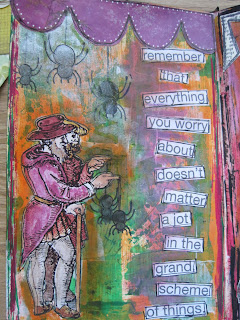 remember
that
everything
you worry
about
doesn't
matter
a jot
in the
grand
scheme
of things!